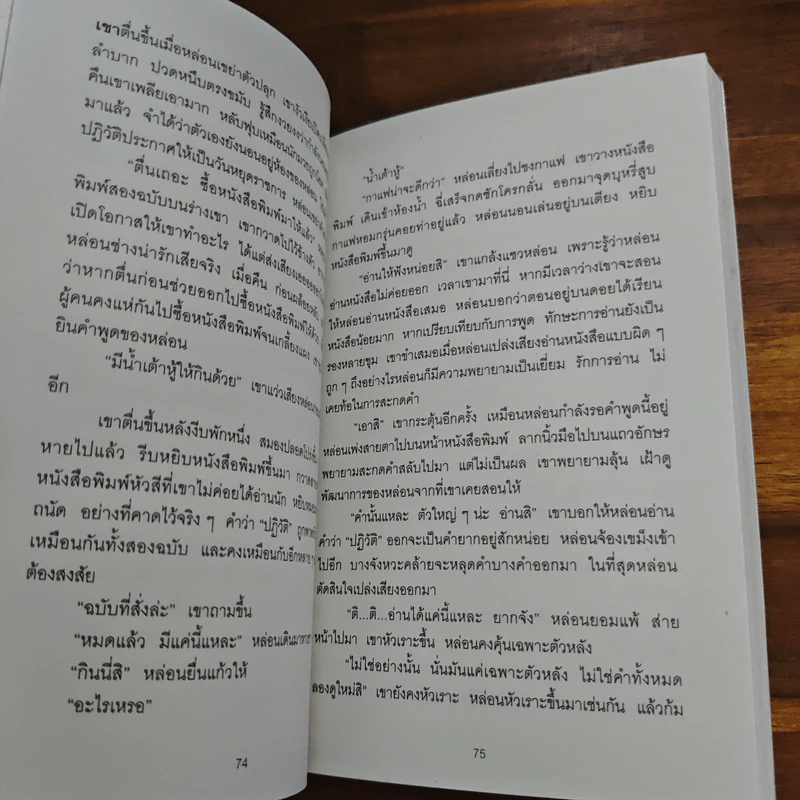 เขาตื่นขึ้นเมื่อหล่อนเขย่าตัวปลุก
ลำบาก ปวดหนึบตรงขมับ
คืนเขาเพลียเอามาก หลับฟุบเหมือนนักมวย
มาแล้ว จำได้ว่าตัวเองยังนอนอยู่ห้องของหล่อน
ปฏิวัติประกาศให้เป็นวันหยุดราชการ
“ตื่นเถอะ ซื้อหนังสือพิมพ์มาให้แล้ว”
พิมพ์สองฉบับบนร่างเขา เขากวาดไปไว้ข้างตัว
เปิดโอกาสให้เขาทำอะไร ได้แต่ส่งเสียง
หล่อนช่างน่ารักเสียจริง เมื่อคืน
ว่าหากตื่นก่อนช่วยออกไปซื้อหนังสือพิมพ์ให้ด้วย
ผู้คนคงแห่กันไปซื้อหนังสือพิมพ์จนเกลี้ยงแผง
ยินคำพูดของหล่อน
“มีน้ำเต้าหู้ให้กินด้วย” เขาแว่วเสียงหล่อน
อีก
เขาตื่นขึ้นหลังงีบพักหนึ่ง
หายไปแล้ว รีบหยิบหนังสือพิมพ์ขึ้นมา
หนังสือพิมพ์หัวสีที่เขาไม่ค่อยได้อ่านนัก
ถนัด อย่างที่คาดไว้จริง ๆ คำว่า “ปฏิวัติ”
เหมือนกันทั้งสองฉบับ และคงเหมือนกับอีกหลาย
ต้องสงสัย
“ฉบับที่สั่งล่ะ” เขาถามขึ้น
“หมดแล้ว มีแค่นี้แหละ” หล่อนเดินมา
“กินนี่สิ” หล่อนยื่นแก้วให้
“อะไรเหรอ”
74
“น้ำเต้าหู้”
“กาแฟน่าจะดีกว่า” หล่อนเลี่ยงไปชงกาแฟ เขาวางหนังสือ
พิมพ์ เดินเข้าห้องน้ำ ฉี่เสร็จกดชักโครกลั่น ออกมาจุดบุหรี่สูบ
กาแฟหอมกรุ่นคอยท่าอยู่แล้ว หล่อนนอนเล่นอยู่บนเตียง หยิบ
หนังสือพิมพ์ขึ้นมาดู
“อ่านให้ฟังหน่อยสิ” เขาแกล้งแซวหล่อน เพราะรู้ว่าหล่อน
อ่านหนังสือไม่ค่อยออก เวลาเขามาที่นี่ หากมีเวลาว่างเขาจะสอน
ให้หล่อนอ่านหนังสือเสมอ หล่อนบอกว่าตอนอยู่บนดอยได้เรียน
หนังสือน้อยมาก หากเปรียบเทียบกับการพูด ทักษะการอ่านยังเป็น
รองหลายขุม เขาขำเสมอเมื่อหล่อนเปล่งเสียงอ่านหนังสือแบบผิด ๆ
ถูก ๆ ถึงอย่างไรหล่อนก็มีความพยายามเป็นเยี่ยม รักการอ่าน ไม่
เคยท้อในการสะกดคำ
“เอาสิ” เขากระตุ้นอีกครั้ง เหมือนหล่อนกำลังรอคำพูดนี้อยู่
หล่อนเพ่งสายตาไปบนหน้าหนังสือพิมพ์ ลากนิ้วมือไปบนแถวอักษร
พยายามสะกดคำสลับไปมา แต่ไม่เป็นผล เขาพยายามลุ้น เฝ้าดู
พัฒนาการของหล่อนจากที่เขาเคยสอนให้
“คำนั้นแหละ ตัวใหญ่ ๆ น่ะ อ่านสิ” เขาบอกให้หล่อนอ่าน
คำว่า “ปฏิวัติ” ออกจะเป็นคำยากอยู่สักหน่อย หล่อนจ้องเขม็งเข้า
ไปอีก บางจังหวะคล้ายจะหลุดคำบางคำออกมา ในที่สุดหล่อน
ตัดสินใจเปล่งเสียงออกมา
“ติ...ติ...อ่านได้แค่นี้แหละ ยากจัง” หล่อนยอมแพ้ ส่าย
หน้าไปมา เขาหัวเราะขึ้น หล่อนคงคุ้นเฉพาะตัวหลัง
“ไม่ใช่อย่างนั้น นั่นมันแค่เฉพาะตัวหลัง ไม่ใช่คำทั้งหมด
ลองดูใหม่สิ” เขายังคงหัวเราะ หล่อนหัวเราะขึ้นมาเช่นกัน แล้วก้ม
75